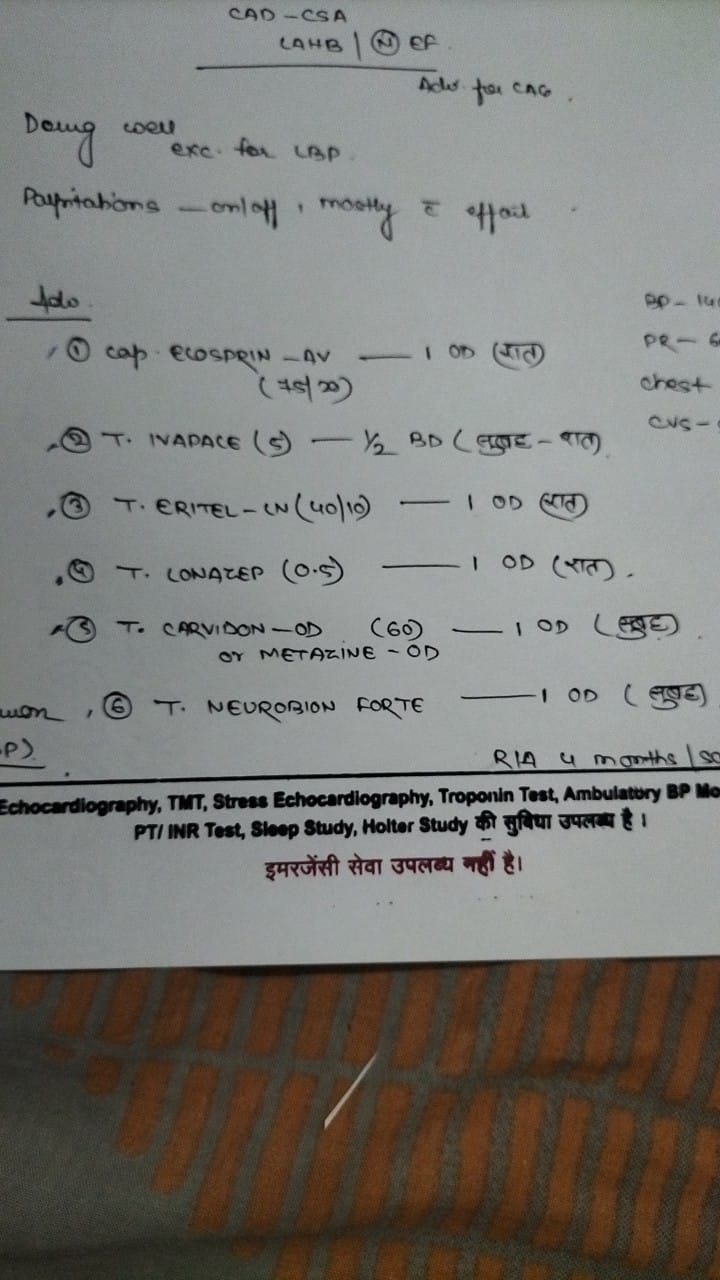 CAD-CSA
LAHB | (N) EF.
Adv. for CAG.
Doing well
exc. for LBP.
Palpitations – on/off, mostly c̄ effort.
Adv.
BP – 14
① Cap. ECOSPRIN – AV — 1 OD (रात)
(75/20)
PR – 6
chest
CVS –
② T. IVAPACE (5) — 1/2 BD (सुबह – रात)
③ T. ERITEL – LN (40/10) — 1 OD (रात)
④ T. LONAZEP (0.5) — 1 OD (रात).
⑤ T. CARVIDON – OD (60) — 1 OD (सुबह)
or METAZINE – OD
⑥ T. NEUROBION FORTE — 1 OD (सुबह)
P).
R/A 4 months /
Echocardiography, TMT, Stress Echocardiography, Troponin Test, Ambulatory BP Mo
PT/ INR Test, Sleep Study, Holter Study की सुविधा उपलब्ध है।
इमरजेंसी सेवा उपलब्ध नहीं है।